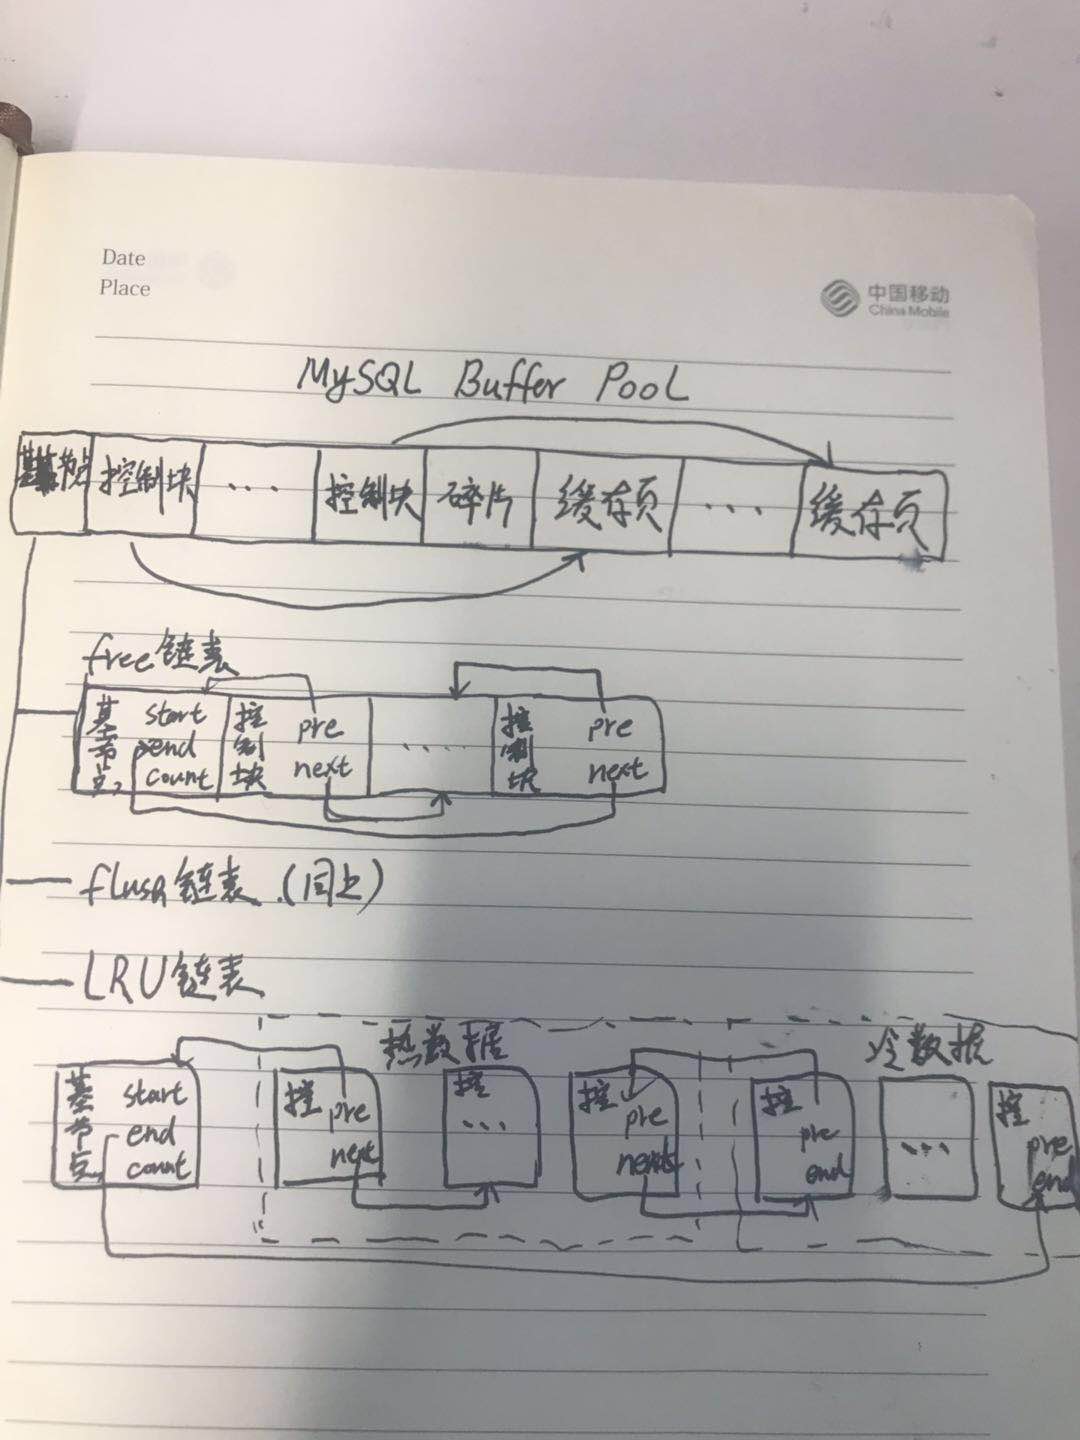 Date
Place
中国移动
China Mobile
MySQL Buffer Pool
基节点 控制块 ... 控制块 碎片 缓存页 ... 缓存页
free链表
基节点 start end count 控制块 pre next ..... 控制块 pre next
flush链表.(同上)
LRU链表
热数据 冷数据
基节点 start end count 控 pre next 控 ... 控 pre next 控 pre end ... 控 pre end